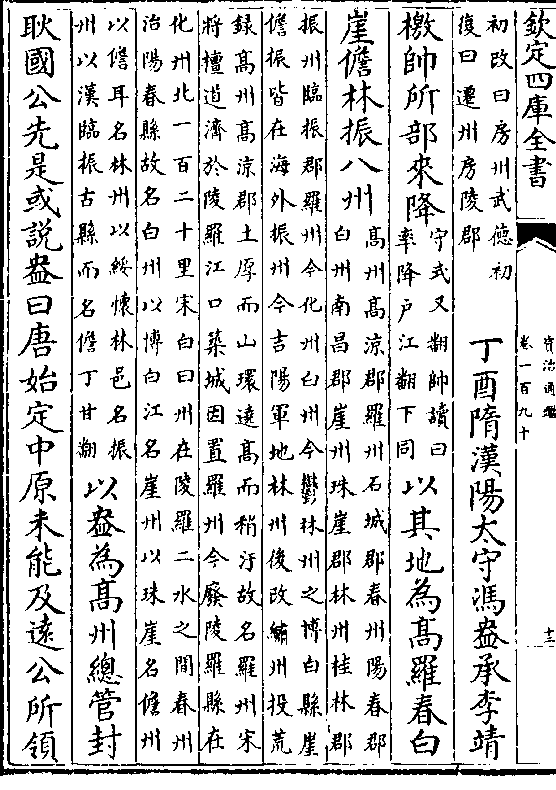 欽定四庫全書
資治通鑑
卷一百九十
十二
初改曰房州武德初
復曰遷州房陵郡
丁酉隋漢陽太守馮盎承李靖
檄帥所部來降
守式又翻帥讀曰
率降戶江翻下同
以其地為高羅春白
崖儋林振八州
高州高涼郡羅州石城郡春州陽春郡
白州南昌郡崖州珠崖郡林州桂林郡
振州臨振郡羅州今化州白州今鬱林州之博白縣崖
儋振皆在海外振州今吉陽軍地林州後改繡州投荒
録高州高涼郡土厚而山環遶高而稍汙故名羅州宋
將檀道濟於陵羅江口築城因置羅州今廢陵羅縣在
化州北一百二十里宋白曰州在陵羅二水之間春州
治陽春縣故名白州以博白江名崖州以珠崖名儋州
以儋耳名林州以綏懷林邑名振
州以漢臨振古縣而名儋丁甘翻
以盎為高州總管封
耿國公先是或說盎曰唐始定中原未能及遠公所領